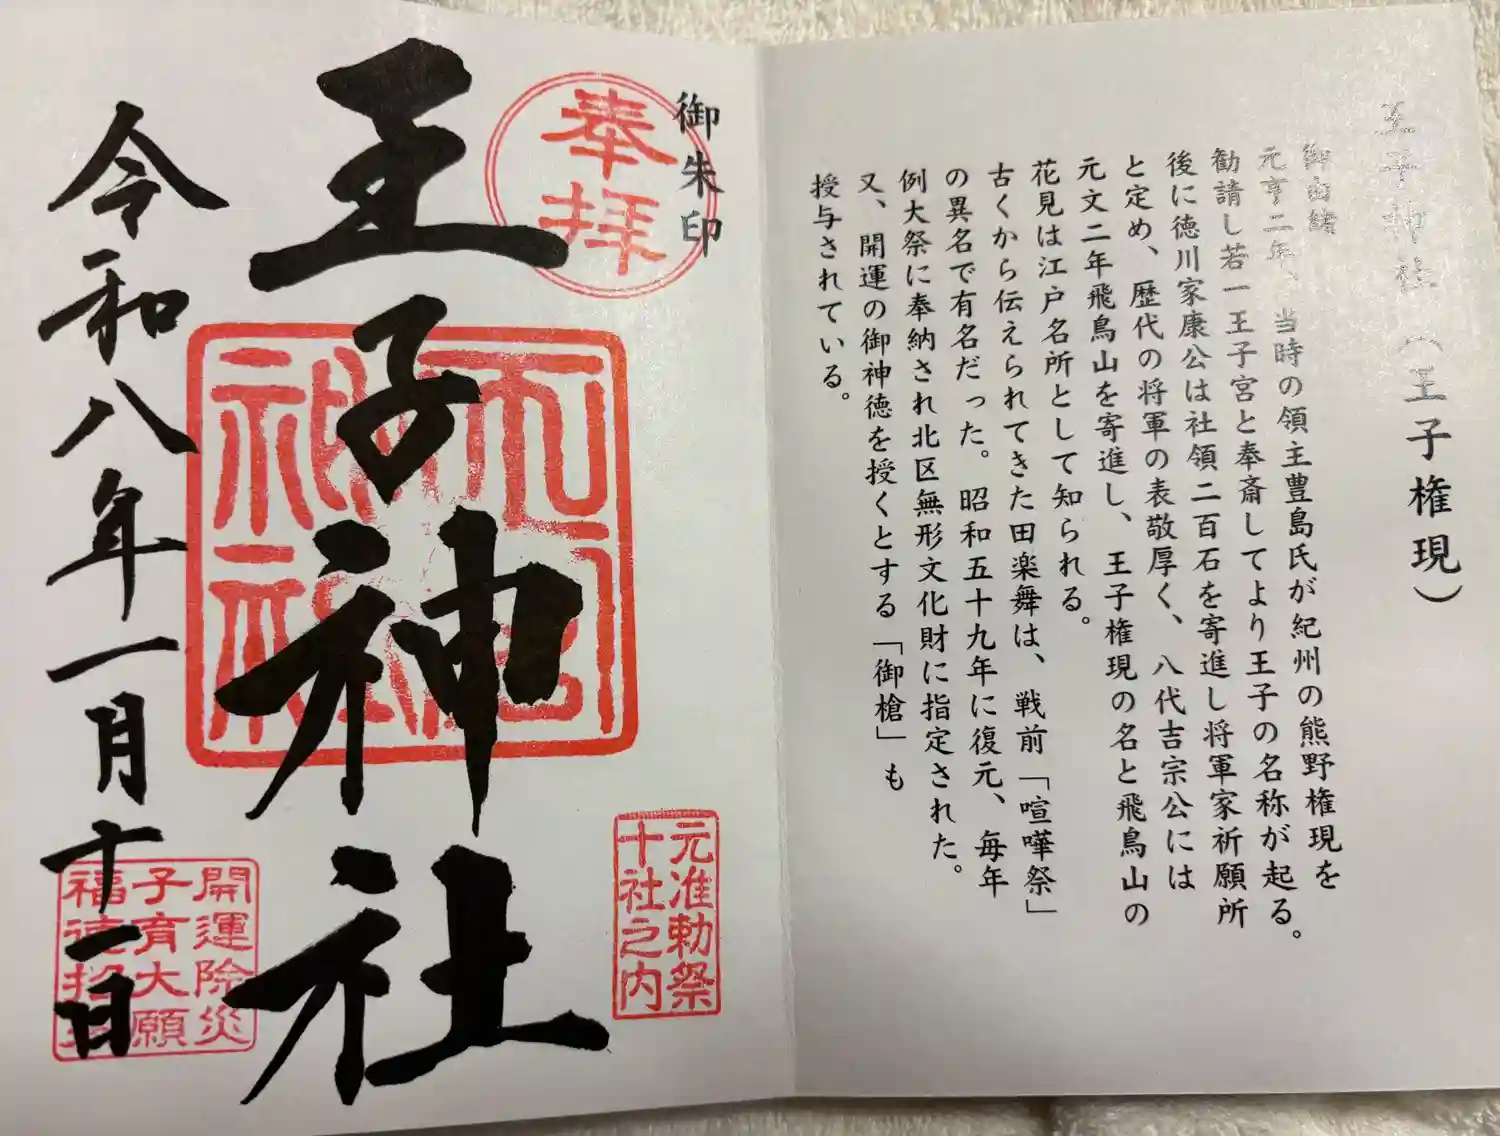 王子神社(王子権現)
御由緒
元亨二年、当時の領主豊島氏が紀州の熊野権現を
勧請し若一王子宮と奉斎してより王子の名称が起る。
後に徳川家康公は社領二百石を寄進し将軍家祈願所
と定め、歴代の将軍の表敬厚く、八代吉宗公には
元文二年飛鳥山を寄進し、王子権現の名と飛鳥山の
花見は江戸名所として知られる。
古くから伝えられてきた田楽舞は、戦前「喧嘩祭」
の異名で有名だった。昭和五十九年に復元、毎年
例大祭に奉納され北区無形文化財に指定された。
又、開運の御神徳を授くとする「御槍」も
授与されている。
御朱印
奉拝
王子神社
王子神社
元准勅祭
十社之内
令和八年一月十一日
開運除災
子育大願
福徳招